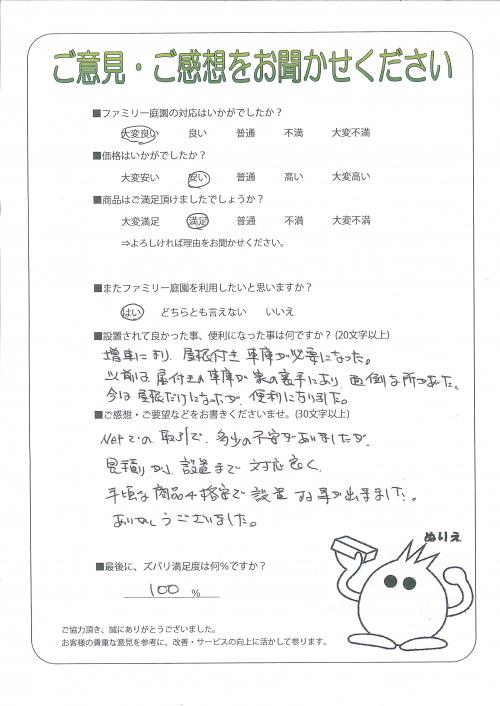 ご意見・ご感想をお聞かせください
■ファミリー庭園の対応はいかがでしたか？
大変良い 良い 普通 不満 大変不満
■価格はいかがでしたか？
大変安い 安い 普通 高い 大変高い
■商品はご満足頂けましたでしょうか？
大変満足 満足 普通 不満 大変不満
⇒よろしければ理由をお聞かせください。
■またファミリー庭園を利用したいと思いますか？
はい どちらとも言えない いいえ
■設置されて良かった事、便利になった事は何ですか？(20文字以上)
増車により、屋根付き車庫が必要になった。
以前は扉付きの車庫が家の裏手にあり、面倒な所があった、
今は屋根だけになったが、便利になりました。
■ご感想・ご要望などをお書きくださいませ。(30文字以上)
Netでの取引で、多少の不安がありましたが、
見積りから設置まで対応良く、
手頃な商品が格安で設置する事が出来ました。
ありがとうございました。
ぬりえ
■最後に、ズバリ満足度は何％ですか？
100 ％
ご協力頂き、誠にありがとうございました。
お客様の貴重な意見を参考に、改善・サービスの向上に活かして参ります。